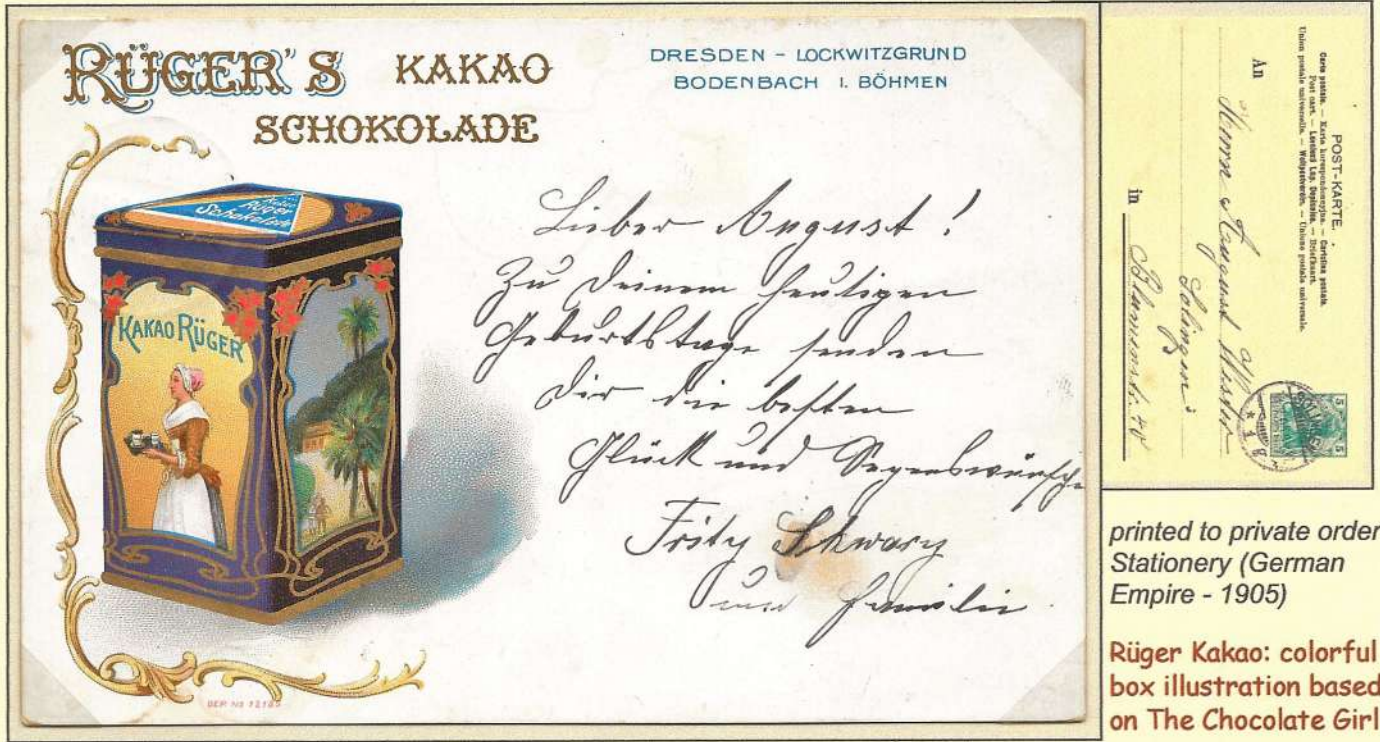 RÜGER'S KAKAO
SCHOKOLADE
DRESDEN – LOCKWITZGRUND
BODENBACH I. BÖHMEN
Kakao
Rüger
Schokolade
KAKAO RÜGER
Lieber August!
Zu Deinem heutigen
Geburtstage senden
Dir die besten
Glück und Segenswünsche
Fritz Schwarz
und Familie
DEP. No 12185
POST-KARTE.
Carte postale. — Karta korespondencyjna. — Cartolina postale.
Post card. — Levelező Lap. Dopisnica. — Briefkaart.
Union postale universelle. — Weltpostverein. — Unione postale universale.
An
Herrn August
Solingen
in
5
5
printed to private order
Stationery (German
Empire - 1905)
Rüger Kakao: colorful
box illustration based
on The Chocolate Girl